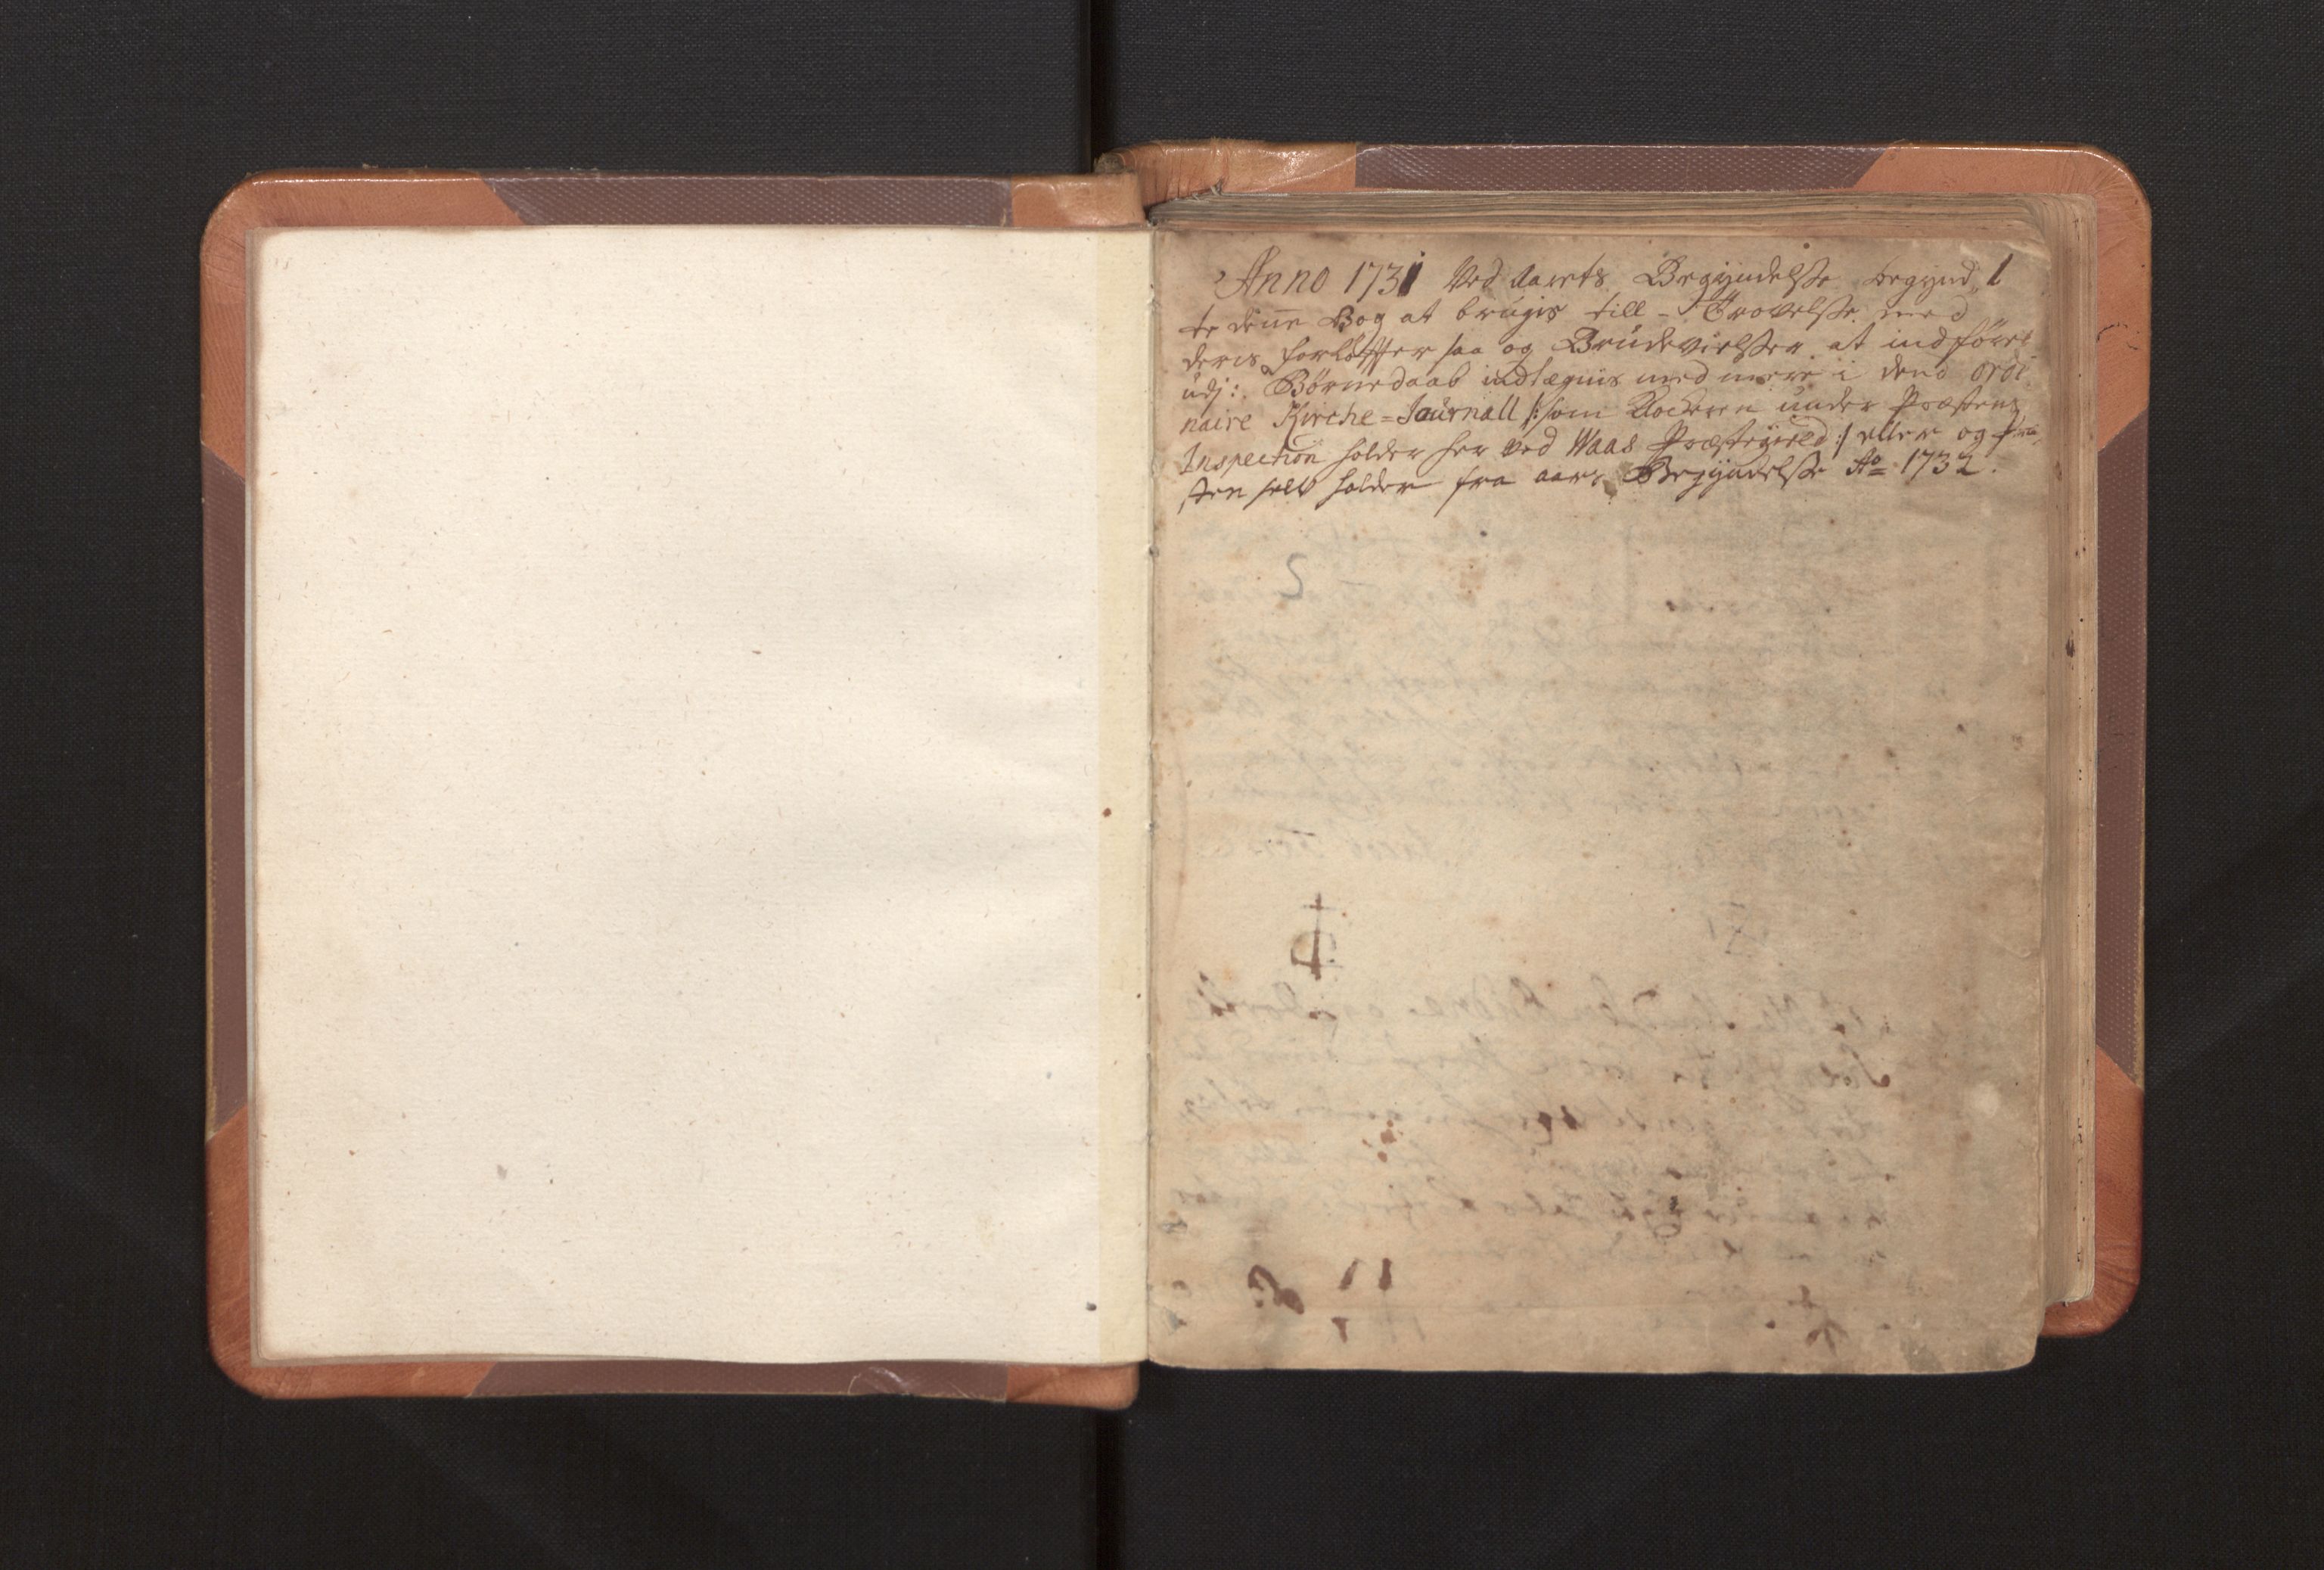 Anno 1731 Ved Aarets Begÿndelse begynd„ 1
te denne Bog at brugis till Trovelse med
deris forløffter saa og Brudevielser at indføre
udj: Børnedaab indtegnis med mere i dend ordi
naire Kirche=Journall /: som Klocheren under Præstens
Inspection holder her ved Waas Præstegield :/ eller og Præ
sten selv holder fra aars Begÿndelse Ao 1732.
2